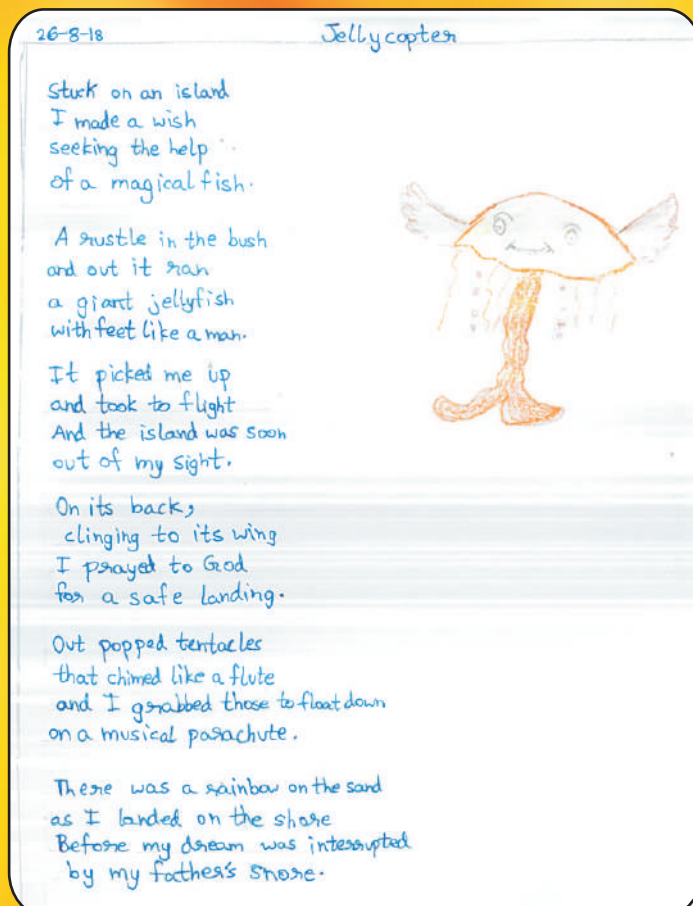 26-8-18
Jellycopter
Stuck on an island
I made a wish
seeking the help
of a magical fish.
A rustle in the bush
and out it ran
a giant jellyfish
with feet like a man.
It picked me up
and took to flight
And the island was soon
out of my sight.
On its back,
clinging to its wing
I prayed to God
for a safe landing.
Out popped tentacles
that chimed like a flute
and I grabbed those to float down
on a musical parachute.
There was a rainbow on the sand
as I landed on the shore
Before my dream was interrupted
by my father's snore.